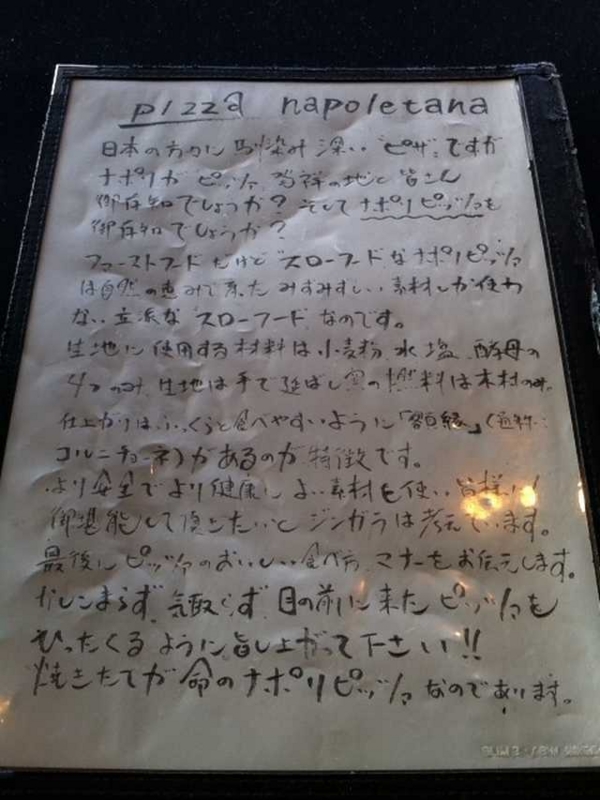 pizza napoletana
日本の方々に馴染み深い"ピザ"ですが
ナポリがピッツァ発祥の地と皆さん
御存知でしょうか?そしてナポリピッツァも
御存知でしょうか?
ファーストフードだけど"スローフード"なナポリピッツァ
は自然の恵みで来たみずみずしい素材しか使わ
ない立派な"スローフード"なのです。
生地に使用する材料は小麦粉、水、塩、酵母の
4つのみ、生地は手で延ばし窯の燃料は木材のみ。
仕上がりはふっくらと食べやすいように「額縁」(通称:
コルニチョーネ)があるのが特徴です。
より安全でより健康によい素材を使い皆様に
御堪能して頂きたいとジンガラは考えています。
最後にピッツァのおいしい食べ方、マナーをお伝えします。
かしこまらず、気取らず、目の前に来たピッツァを
ひったくるように召し上がって下さい!!
焼きたてが命のナポリピッツァなのであります。